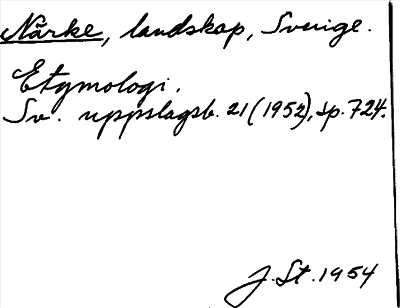 Närke, landskap, Sverige.
Etymologi.
Sv. uppslagsb. 21 (1952), sp. 724.
J. St. 1954